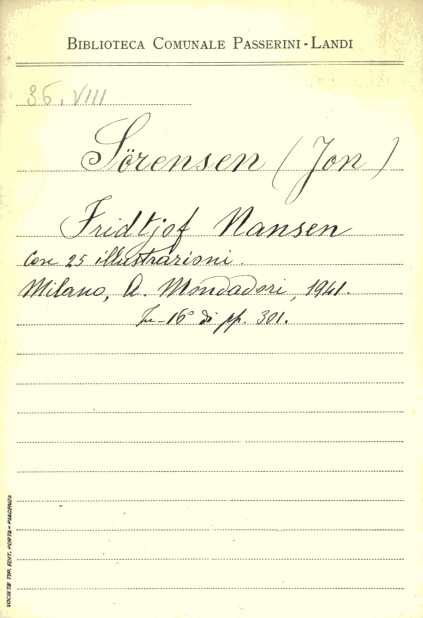 BIBLIOTECA COMUNALE PASSERINI-LANDI
36. VIII
Sörensen (Jon)
Fridtjof Nansen
Con 25 illustrazioni.
Milano, A. Mondadori, 1941.
In-16° di pp. 301.
SOCIETÀ TIP. EDIT. PORTA - PIACENZA